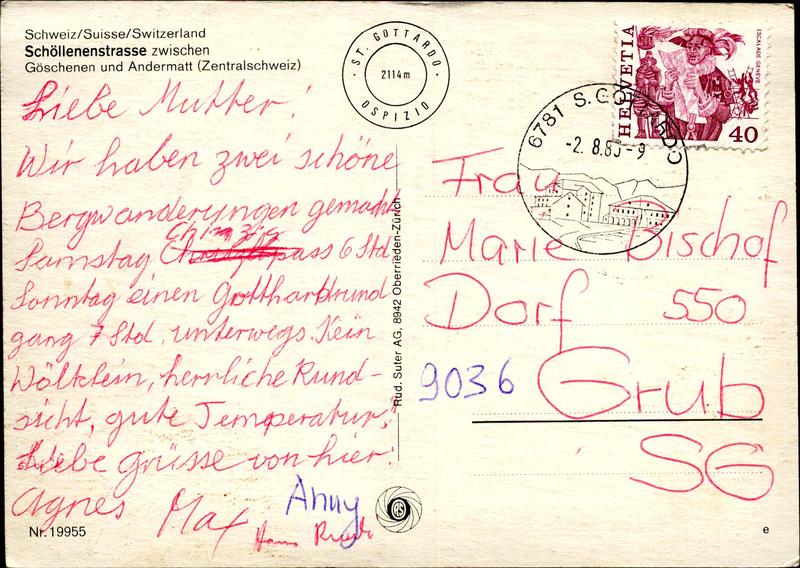 Schweiz/Suisse/Switzerland
Schöllenenstrasse zwischen
Göschenen und Andermatt (Zentralschweiz)
Liebe Mutter!
Wir haben zwei schöne
Bergwanderungen gemacht
Chinzig
Samstag pass 6 Std
Sonntag einen Gotthardrund
gang 7 Std. unterwegs. Kein
Wölklein, herrliche Rund-
sicht, gute Temperatur.
Liebe grüsse von hier.
Agnes Max Anny
Hans
Nr. 19955
ST. GOTTARDO
2114 m
OSPIZIO
Rud. Suter AG, 8942 Oberrieden-Zürich
6781 S. GOTTARDO
-2. 8.85-9
HELVETIA
ESCALADE GENEVE
40
Frau
Marie Bischof
Dorf 550
9036 Grub
SG
e